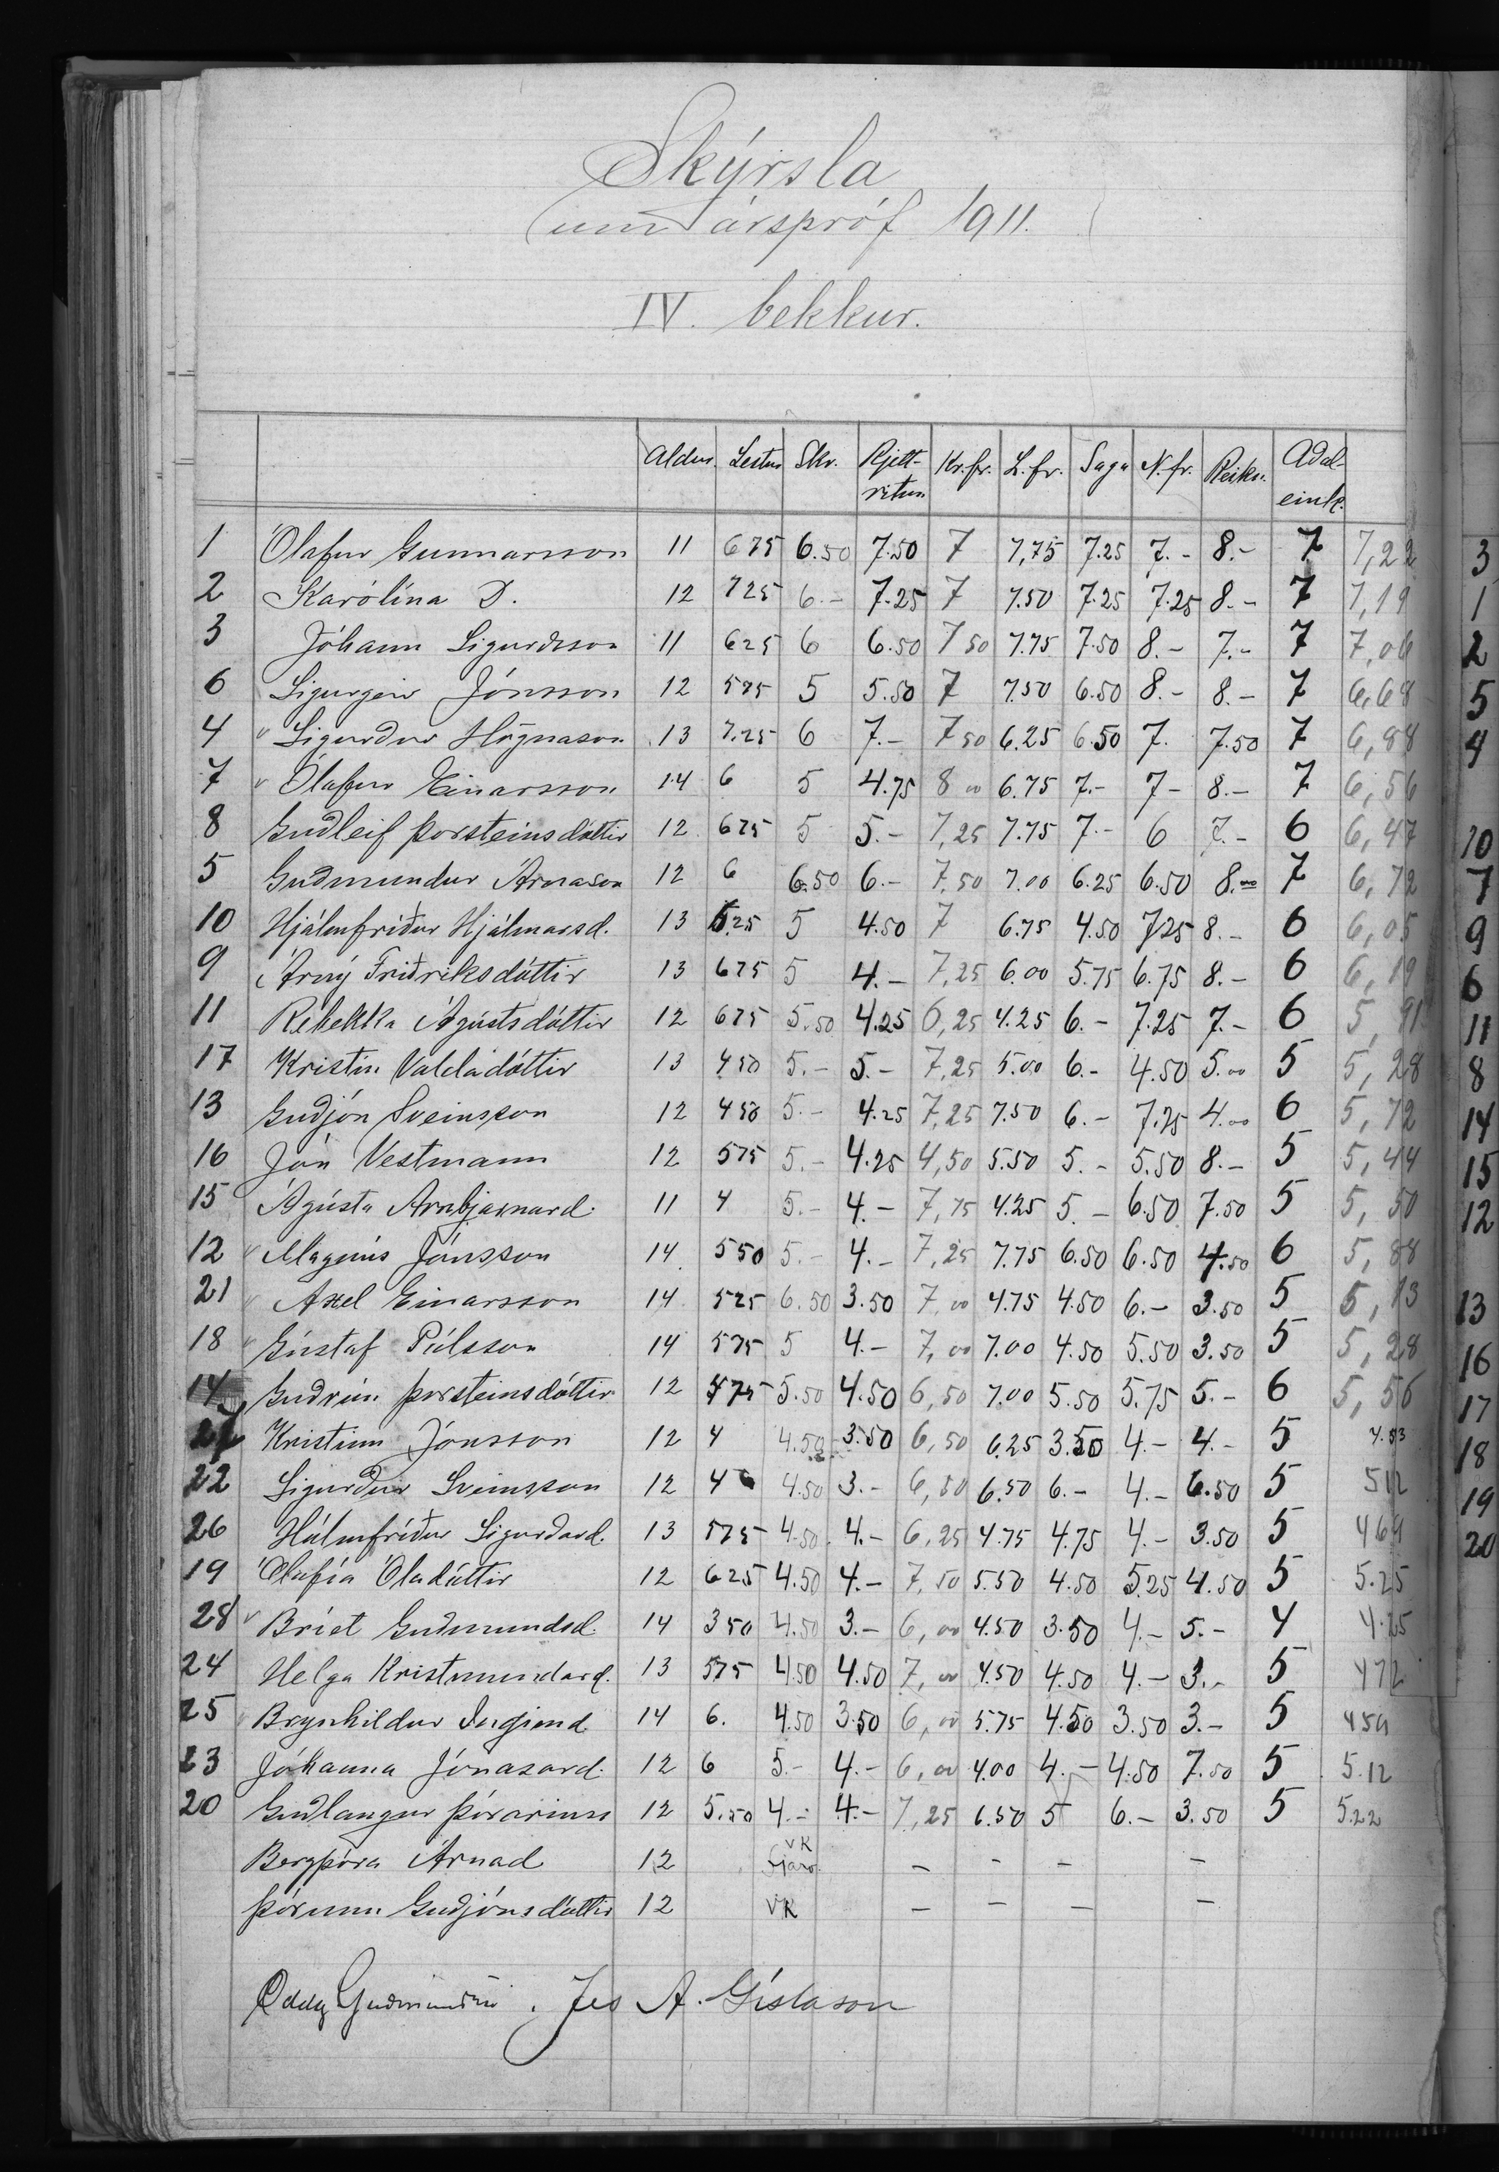 Skýrsla
um árspróf 1911.
IV. bekkur.
Aldur. Lestur Skr. Rjett-ritun Kr.fr. L.fr. Saga N.fr. Reikn. Aðal-eink.
1 Ólafur Gunnarsson 11 675 6.50 7.50 7 7,75 7.25 7.- 8.- 7 7,22
2 Karólína D. 12 725 6.- 7.25 7 7.50 7.25 7.25 8.- 7 7,19
3 Jóhann Sigurðsson 11 625 6 6.50 7 50 7.75 7.50 8.- 7.- 7 7,06
6 Sigurgeir Jónsson 12 575 5 5.50 7 7.50 6.50 8.- 8.- 7 6,68
4 " Sigurður Högnason 13 7.25 6 7.- 7 50 6.25 6.50 7. 7.50 7 6,88
7 " Ólafur Einarsson 14 6 5 4.75 8 00 6.75 7.- 7- 8.- 7 6,56
8 Guðleif Þorsteinsdóttir 12 675 5 5.- 7,25 7.75 7.- 6 7.- 6 6,47
5 Guðmundur Árnason 12 6 6.50 6.- 7,50 7.00 6.25 6.50 8.00 7 6,72
10 Hjálmfríður Hjálmarsd. 13 5.25 5 4.50 7 6.75 4.50 725 8.- 6 6,05
9 Árný Friðriksdóttir 13 675 5 4.- 7,25 6.00 5.75 6.75 8.- 6 6,19
11 Rebekka Ágústsdóttir 12 675 5.50 4.25 6,25 4.25 6.- 7.25 7.- 6 5,91
17 Kristín Valdadóttir 13 450 5.- 5.- 7,25 5.00 6.- 4.50 5.00 5 5,28
13 Guðjón Sveinsson 12 450 5.- 4.25 7,25 7.50 6.- 7.25 4.00 6 5,72
16 Jón Vestmann 12 575 5.- 4.25 4,50 5.50 5.- 5.50 8.- 5 5,44
15 Ágústa Arnbjarnard. 11 4 5.- 4.- 7,75 4.25 5.- 6.50 7.50 5 5,50
12 " Magnús Jónsson 14 550 5.- 4.- 7,25 7.75 6.50 6.50 4.50 6 5,88
21 " Axel Einarsson 14 525 6.50 3.50 7,00 4.75 4.50 6.- 3.50 5 5,13
18 " Gústaf Pálsson 14 575 5 4.- 7,00 7.00 4.50 5.50 3.50 5 5,28
14 Guðrún Þorsteinsdóttir 12 475 5.50 4.50 6,50 7.00 5.50 5.75 5.- 6 5,56
27 Kristinn Jónsson 12 4 4.50 3.50 6,50 6.25 3.50 4.- 4.- 5 4.53
22 Sigurður Sveinsson 12 4 4.50 3.- 6,50 6.50 6.- 4.- 6.50 5 512
26 Hólmfríður Sigurðard. 13 575 4.50 4.- 6,25 4.75 4.75 4.- 3.50 5 469
19 Ólafía Óladóttir 12 625 4.50 4.- 7,50 5.50 4.50 5.25 4.50 5 5.25
28 " Bríet Guðmundsd. 14 350 4.50 3.- 6,00 4.50 3.50 4.- 5.- 4 4.25
24 Helga Kristmundard. 13 575 4.50 4.50 7,00 4.50 4.50 4.- 3.- 5 472
25 " Brynhildur 14 6. 4.50 3.50 6,00 5.75 4.50 3.50 3.- 5 459
23 Jóhanna Jónasard. 12 6 5.- 4.- 6,00 4.00 4.- 4.50 7.50 5 5.12
20 Guðlaugur Þórarinss 12 5.50 4.- 4.- 7,25 6.50 5 6.- 3.50 5 5.22
Bergþóra Árnad 12 VK - - - -
Þórunn Guðjónsdóttir 12 VK - - - -
Oddg Guðmundsson. Jes A. Gíslason
3
1
2
5
4
10
7
9
6
11
8
14
15
12
13
16
17
18
19
20